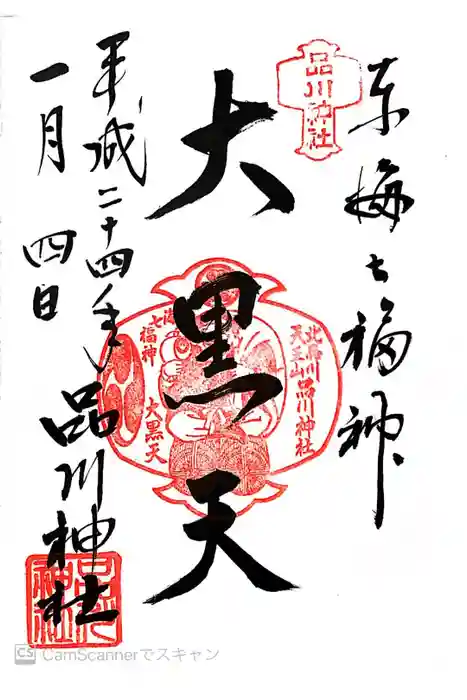 東海七福神
品川神社
大黒天
北品川
天王山
品川神社
七福神
大黒天
平成二十四年
一月四日
品川神社
品川神社
CS CamScannerでスキャン